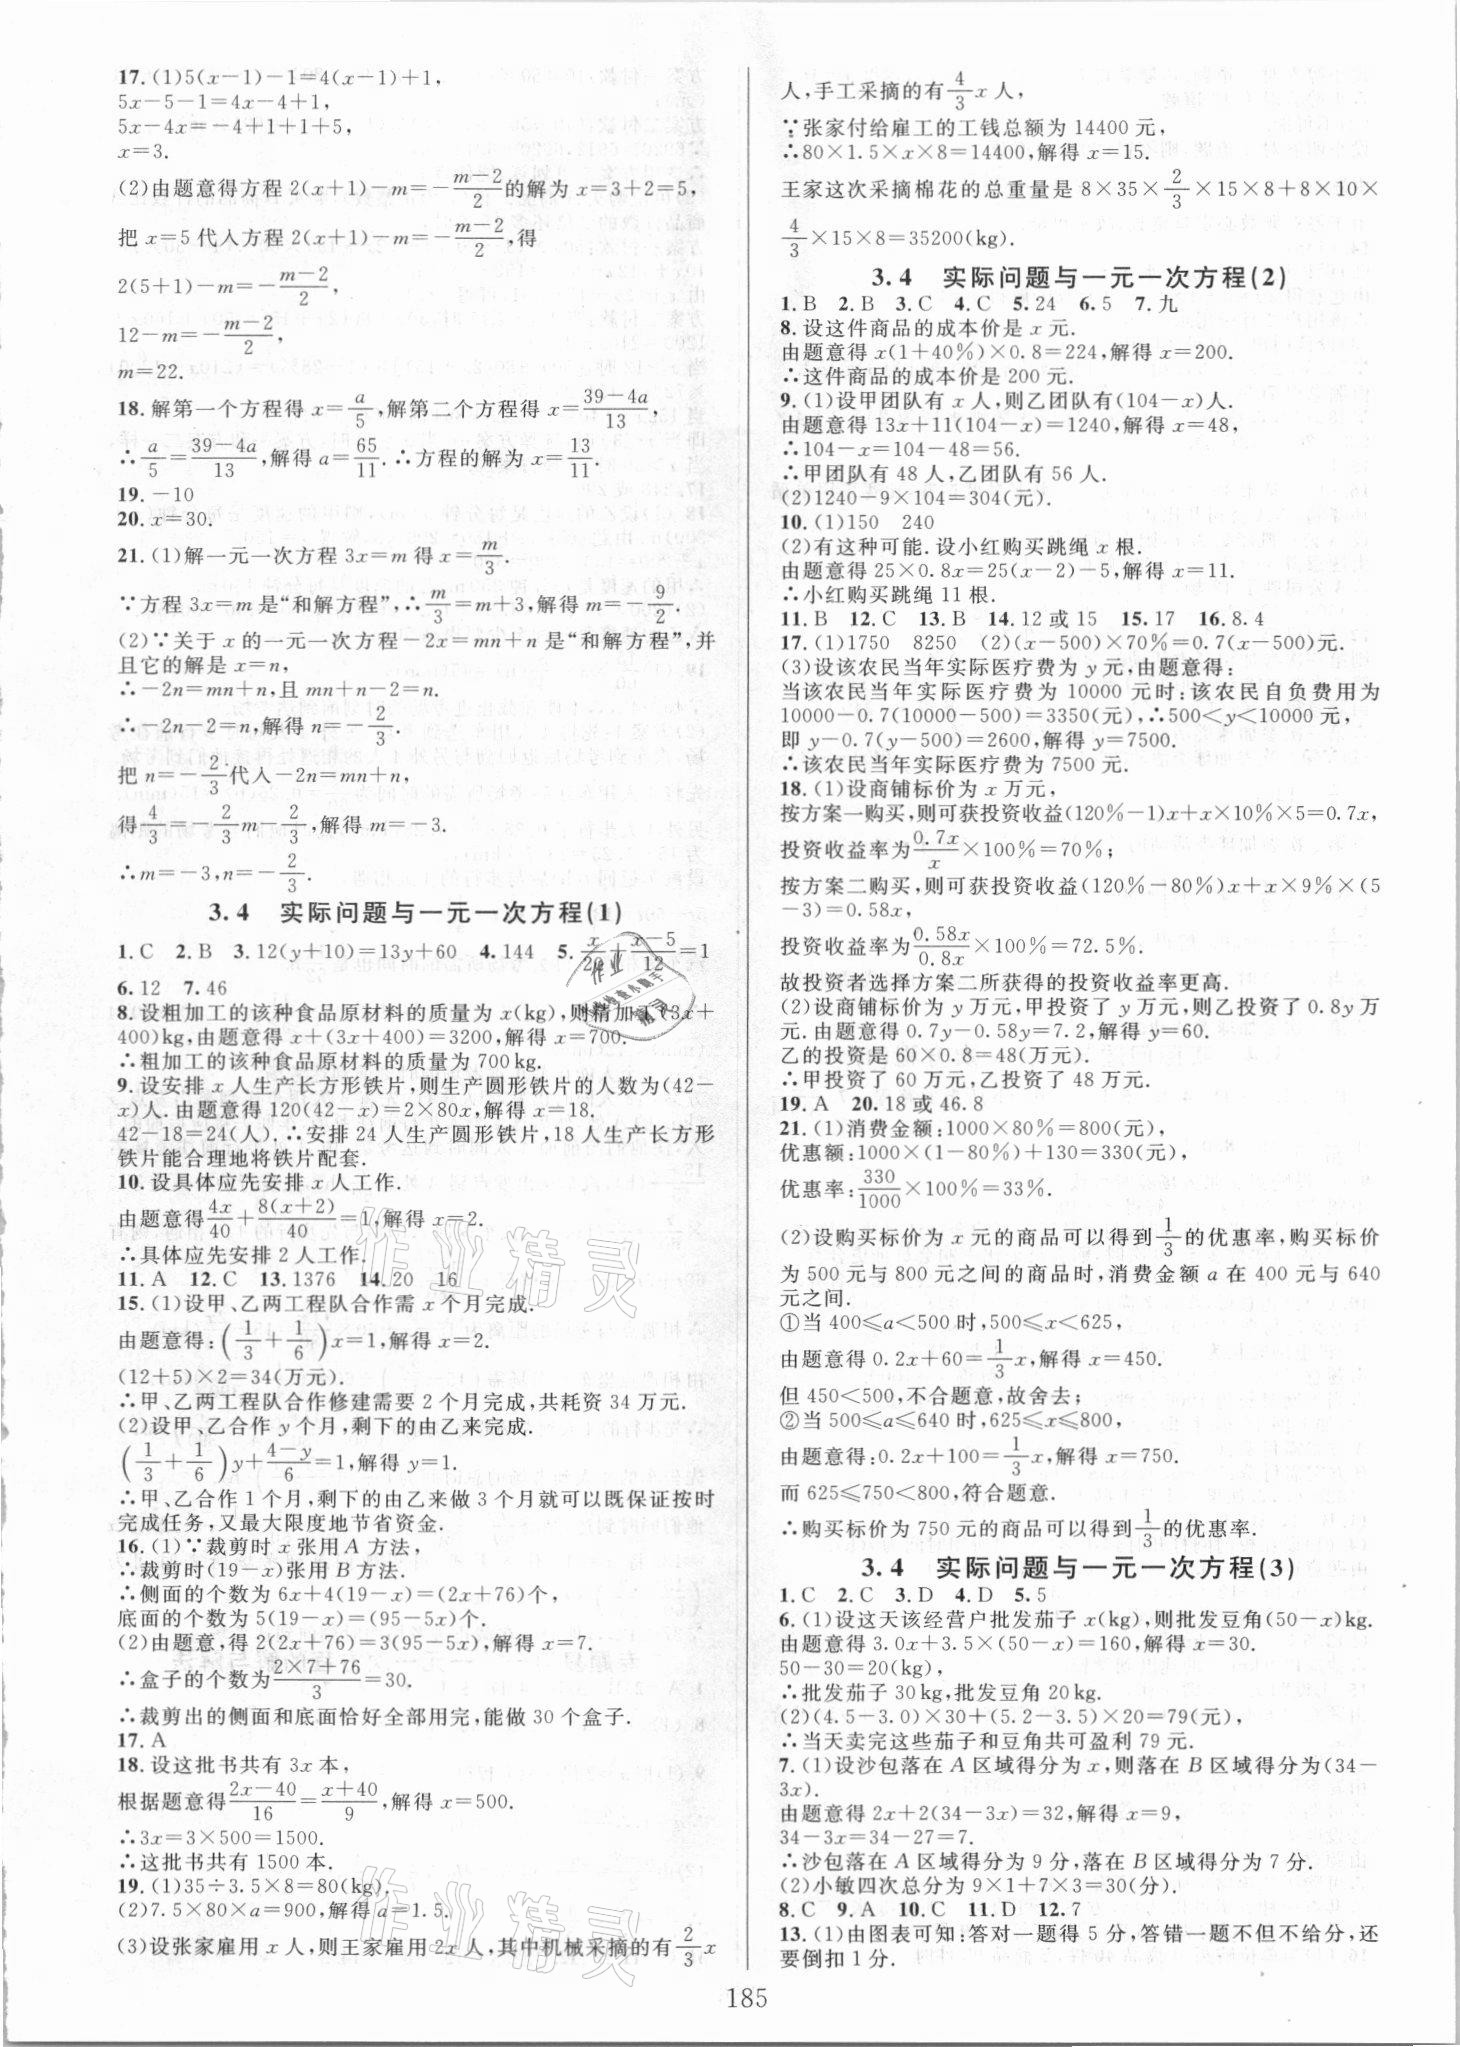 17.(1)5(x－1)－1＝4(x－1)＋1,
5x－5－1＝4x－4＋1,
5x－4x＝－4＋1＋1＋5,
x＝3.
(2)由题意得方程 2(x＋1)－m＝－(m－2)/2的解为 x＝3＋2＝5,
把 x＝5代入方程 2(x＋1)－m＝－(m－2)/2,得
2(5＋1)－m＝－(m－2)/2,
12－m＝－(m－2)/2,
m＝22.
18.解第一个方程得 x＝a/5,解第二个方程得 x＝(39－4a)/13,
∴a/5＝(39－4a)/13,解得 a＝65/11.∴方程的解为 x＝13/11.
19.－10
20.x＝30.
21.(1)解一元一次方程 3x＝m 得 x＝m/3.
∵方程 3x＝m 是“和解方程”,∴m/3＝m＋3,解得 m＝－9/2.
(2)∵关于 x 的一元一次方程－2x＝mn＋n 是“和解方程”,并
且它的解是 x＝n,
∴－2n＝mn＋n,且 mn＋n－2＝n.
∴－2n－2＝n,解得 n＝－2/3.
把 n＝－2/3代入－2n＝mn＋n,
得4/3＝－2/3m－2/3,解得 m＝－3.
∴m＝－3,n＝－2/3.
3.4 实际问题与一元一次方程(1)
1.C 2.B 3.12(y＋10)＝13y＋60 4.144 5.x/20＋(x－5)/12＝1
6.12 7.46
8.设粗加工的该种食品原材料的质量为 x(kg),则精加工(3x＋
400)kg,由题意得 x＋(3x＋400)＝3200,解得 x＝700.
∴粗加工的该种食品原材料的质量为 700 kg.
9.设安排 x 人生产长方形铁片,则生产圆形铁片的人数为(42－
x)人.由题意得 120(42－x)＝2×80x,解得 x＝18.
42－18＝24(人).∴安排 24 人生产圆形铁片,18 人生产长方形
铁片能合理地将铁片配套.
10.设具体应先安排 x 人工作.
由题意得4x/40＋8(x＋2)/40＝1,解得 x＝2.
∴具体应先安排 2 人工作.
11.A 12.C 13.1376 14.20 16
15.(1)设甲、乙两工程队合作需 x 个月完成.
由题意得:(1/3＋1/6)x＝1,解得 x＝2.
(12＋5)×2＝34(万元).
∴甲、乙两工程队合作修建需要 2 个月完成,共耗资 34 万元.
(2)设甲、乙合作 y 个月,剩下的由乙来完成.
(1/3＋1/6)y＋(4－y)/6＝1,解得 y＝1.
∴甲、乙合作 1 个月,剩下的由乙来做 3 个月就可以既保证按时
完成任务,又最大限度地节省资金.
16.(1)∵裁剪时 x 张用 A 方法,
∴裁剪时(19－x)张用 B 方法.
∴侧面的个数为 6x＋4(19－x)＝(2x＋76)个,
底面的个数为 5(19－x)＝(95－5x)个.
(2)由题意,得 2(2x＋76)＝3(95－5x),解得 x＝7.
∴盒子的个数为(2×7＋76)/3＝30.
∴裁剪出的侧面和底面恰好全部用完,能做 30 个盒子.
17.A
18.设这批书共有 3x 本,
根据题意得(2x－40)/16＝(x＋40)/9,解得 x＝500.
∴3x＝3×500＝1500.
∴这批书共有 1500 本.
19.(1)35÷3.5×8＝80(kg).
(2)7.5×80×a＝900,解得 a＝1.5.
(3)设张家雇用 x 人,则王家雇用 2x 人,其中机械采摘的有2/3x
人,手工采摘的有4/3x 人,
∵张家付给雇工的工钱总额为 14400 元,
∴80×1.5×x×8＝14400,解得 x＝15.
王家这次采摘棉花的总重量是 8×35×2/3×15×8＋8×10×
4/3×15×8＝35200(kg).
3.4 实际问题与一元一次方程(2)
1.B 2.B 3.C 4.C 5.24 6.5 7.九
8.设这件商品的成本价是 x 元.
由题意得 x(1＋40%)×0.8＝224,解得 x＝200.
∴这件商品的成本价是 200 元.
9.(1)设甲团队有 x 人,则乙团队有(104－x)人.
由题意得 13x＋11(104－x)＝1240,解得 x＝48,
∴104－x＝104－48＝56.
∴甲团队有 48 人,乙团队有 56 人.
(2)1240－9×104＝304(元).
10.(1)150 240
(2)有这种可能.设小红购买跳绳 x 根.
由题意得 25×0.8x＝25(x－2)－5,解得 x＝11.
∴小红购买跳绳 11 根.
11.B 12.C 13.B 14.12 或 15 15.17 16.8.4
17.(1)1750 8250 (2)(x－500)×70%＝0.7(x－500)元.
(3)设该农民当年实际医疗费为 y 元,由题意得:
当该农民当年实际医疗费为 10000 元时:该农民自负费用为
10000－0.7(10000－500)＝3350(元),∴500＜y＜10000 元,
即 y－0.7(y－500)＝2600,解得 y＝7500.
∴该农民当年实际医疗费为 7500 元.
18.(1)设商铺标价为 x 万元,
按方案一购买,则可获投资收益(120%－1)x＋x×10%×5＝0.7x,
投资收益率为0.7x/x×100%＝70%;
按方案二购买,则可获投资收益(120%－80%)x＋x×9%×(5
－3)＝0.58x,
投资收益率为0.58x/0.8x×100%＝72.5%.
故投资者选择方案二所获得的投资收益率更高.
(2)设商铺标价为 y 万元,甲投资了 y 万元,则乙投资了 0.8y 万
元.由题意得 0.7y－0.58y＝7.2,解得 y＝60.
乙的投资是 60×0.8＝48(万元).
∴甲投资了 60 万元,乙投资了 48 万元.
19.A 20.18 或 46.8
21.(1)消费金额:1000×80%＝800(元),
优惠额:1000×(1－80%)＋130＝330(元),
优惠率:330/1000×100%＝33%.
(2)设购买标价为 x 元的商品可以得到1/3的优惠率,购买标价
为 500 元与 800 元之间的商品时,消费金额 a 在 400 元与 640
元之间.
①当 400≤a＜500 时,500≤x＜625,
由题意得 0.2x＋60＝1/3x,解得 x＝450.
但 450＜500,不合题意,故舍去;
②当 500≤a≤640 时,625≤x≤800,
由题意得:0.2x＋100＝1/3x,解得 x＝750.
而 625≤750＜800,符合题意.
∴购买标价为 750 元的商品可以得到1/3的优惠率.
3.4 实际问题与一元一次方程(3)
1.C 2.C 3.D 4.D 5.5
6.(1)设这天该经营户批发茄子 x(kg),则批发豆角(50－x)kg.
由题意得 3.0x＋3.5×(50－x)＝160,解得 x＝30.
50－30＝20(kg),
∴批发茄子 30 kg,批发豆角 20 kg.
(2)(4.5－3.0)×30＋(5.2－3.5)×20＝79(元),
∴当天卖完这些茄子和豆角共可盈利 79 元.
7.(1)设沙包落在 A 区域得分为 x,则落在 B 区域得分为(34－
3x).
由题意得 2x＋2(34－3x)＝32,解得 x＝9,
34－3x＝34－27＝7.
∴沙包落在 A 区域得分为 9 分,落在 B 区域得分为 7 分.
(2)小敏四次总分为 9×1＋7×3＝30(分).
8.C 9.A 10.C 11.D 12.7
13.(1)由图表可知:答对一题得 5 分,答错一题不但不给分,还
要倒扣 1 分.
185
作业精灵
作业精灵